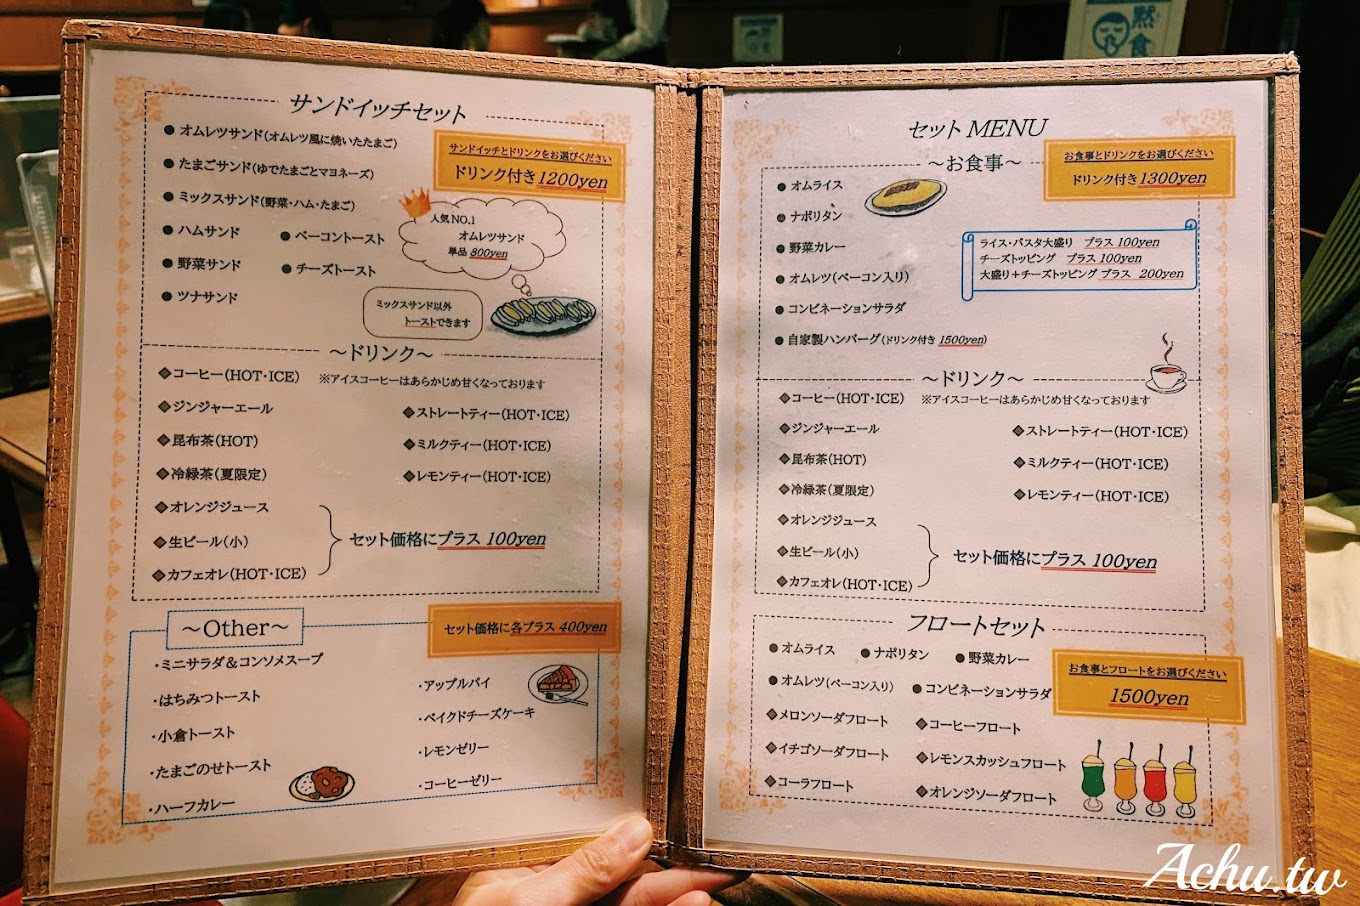 サンドイッチセット
●オムレツサンド(オムレツ風に焼いたたまご)
●たまごサンド(ゆでたまごとマヨネーズ)
●ミックスサンド(野菜・ハム・たまご)
●ハムサンド
●ベーコントースト
●野菜サンド
●チーズトースト
●ツナサンド
サンドイッチとドリンクをお選びください
ドリンク付き1200yen
人気NO.1
オムレツサンド
単品 800yen
ミックスサンド以外
トーストできます
～ドリンク～
◆コーヒー(HOT・ICE) ※アイスコーヒーはあらかじめ甘くなっております
◆ジンジャーエール
◆ストレートティー(HOT・ICE)
◆昆布茶(HOT)
◆ミルクティー(HOT・ICE)
◆冷緑茶(夏限定)
◆レモンティー(HOT・ICE)
◆オレンジジュース
◆生ビール(小)
◆カフェオレ(HOT・ICE)
セット価格にプラス 100yen
～Other～
セット価格に各プラス 400yen
・ミニサラダ&コンソメスープ
・はちみつトースト
・小倉トースト
・たまごのせトースト
・ハーフカレー
・アップルパイ
・ベイクドチーズケーキ
・レモンゼリー
・コーヒーゼリー
黙食
セット MENU
～お食事～
お食事とドリンクをお選びください
ドリンク付き1300yen
●オムライス
●ナポリタン
●野菜カレー
●オムレツ(ベーコン入り)
●コンビネーションサラダ
●自家製ハンバーグ(ドリンク付き 1500yen)
ライス・パスタ大盛り プラス 100yen
チーズトッピング プラス 100yen
大盛り+チーズトッピング プラス 200yen
～ドリンク～
◆コーヒー(HOT・ICE) ※アイスコーヒーはあらかじめ甘くなっております
◆ジンジャーエール
◆ストレートティー(HOT・ICE)
◆昆布茶(HOT)
◆ミルクティー(HOT・ICE)
◆冷緑茶(夏限定)
◆レモンティー(HOT・ICE)
◆オレンジジュース
◆生ビール(小)
◆カフェオレ(HOT・ICE)
セット価格にプラス 100yen
フロートセット
●オムライス ●ナポリタン ●野菜カレー
●オムレツ(ベーコン入り) ●コンビネーションサラダ
お食事とフロートをお選びください
1500yen
◆メロンソーダフロート ◆コーヒーフロート
◆イチゴソーダフロート ◆レモンスカッシュフロート
◆コーラフロート ◆オレンジソーダフロート
Achu.tw